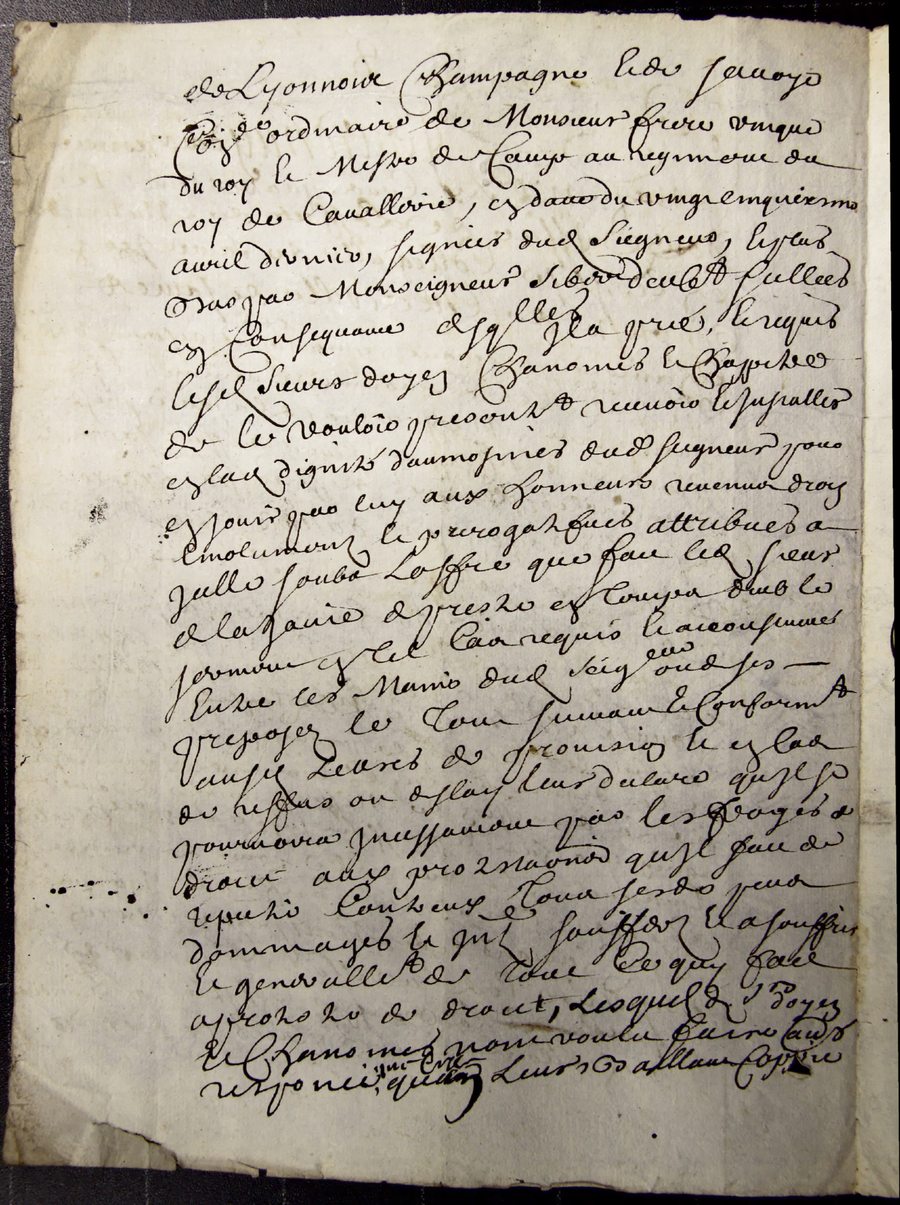 de Lyonnois Champagne et de Savoye
ordinaire de Monsieur frere unique
du roy et Mestre de Camp au regiment du
roy de Cavallerie, en datte du vingt cinquiesme
avril dernier, signées dud Seigneur, et plus
bas par Monseigneur et scellées
en Consequance d'jcelles jl a prié, et requis
lesd Sieurs doyen Chanoines et Chappitre
de le vouloir present.t recevoir et jnstaller
en lad dignité d'aumosnier dud seigneur pour
en jouir par luy aux honneurs revenus droits
emolumens et prerogatifves attribués a
jcelle soubs L'offre que fait led sieur
de la d'estre en tout temps
serment en tel cas requis et accoustumé
Entre les Mains dud Seigneur ou de ses
preposez le Tout suivant et Conform.t
ausd Lettres de provision et en cas
de reffus ou deslay leur declare qu'jl se
pourvoira jncessament par les voyes de
droict aux protestations qu'jl fait de
repeter Contr'eux Tous ses depens
dommages et jnt souffertz et a souffrir
et generallem.t de Tout Ce quj faict
a protester de droict, Lesquels d Srs doyen
et Chanoines n'ont voulu faire
responce, quoy Leur baillant Coppie